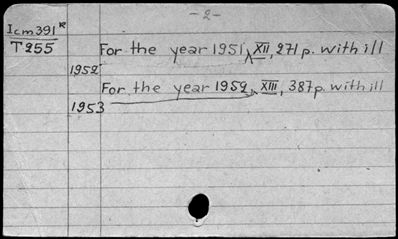 -2-
Icm391k
T255
For the year 1951, XII, 271p. with ill
1952
For the year 1952, XIII, 387p. with ill
1953